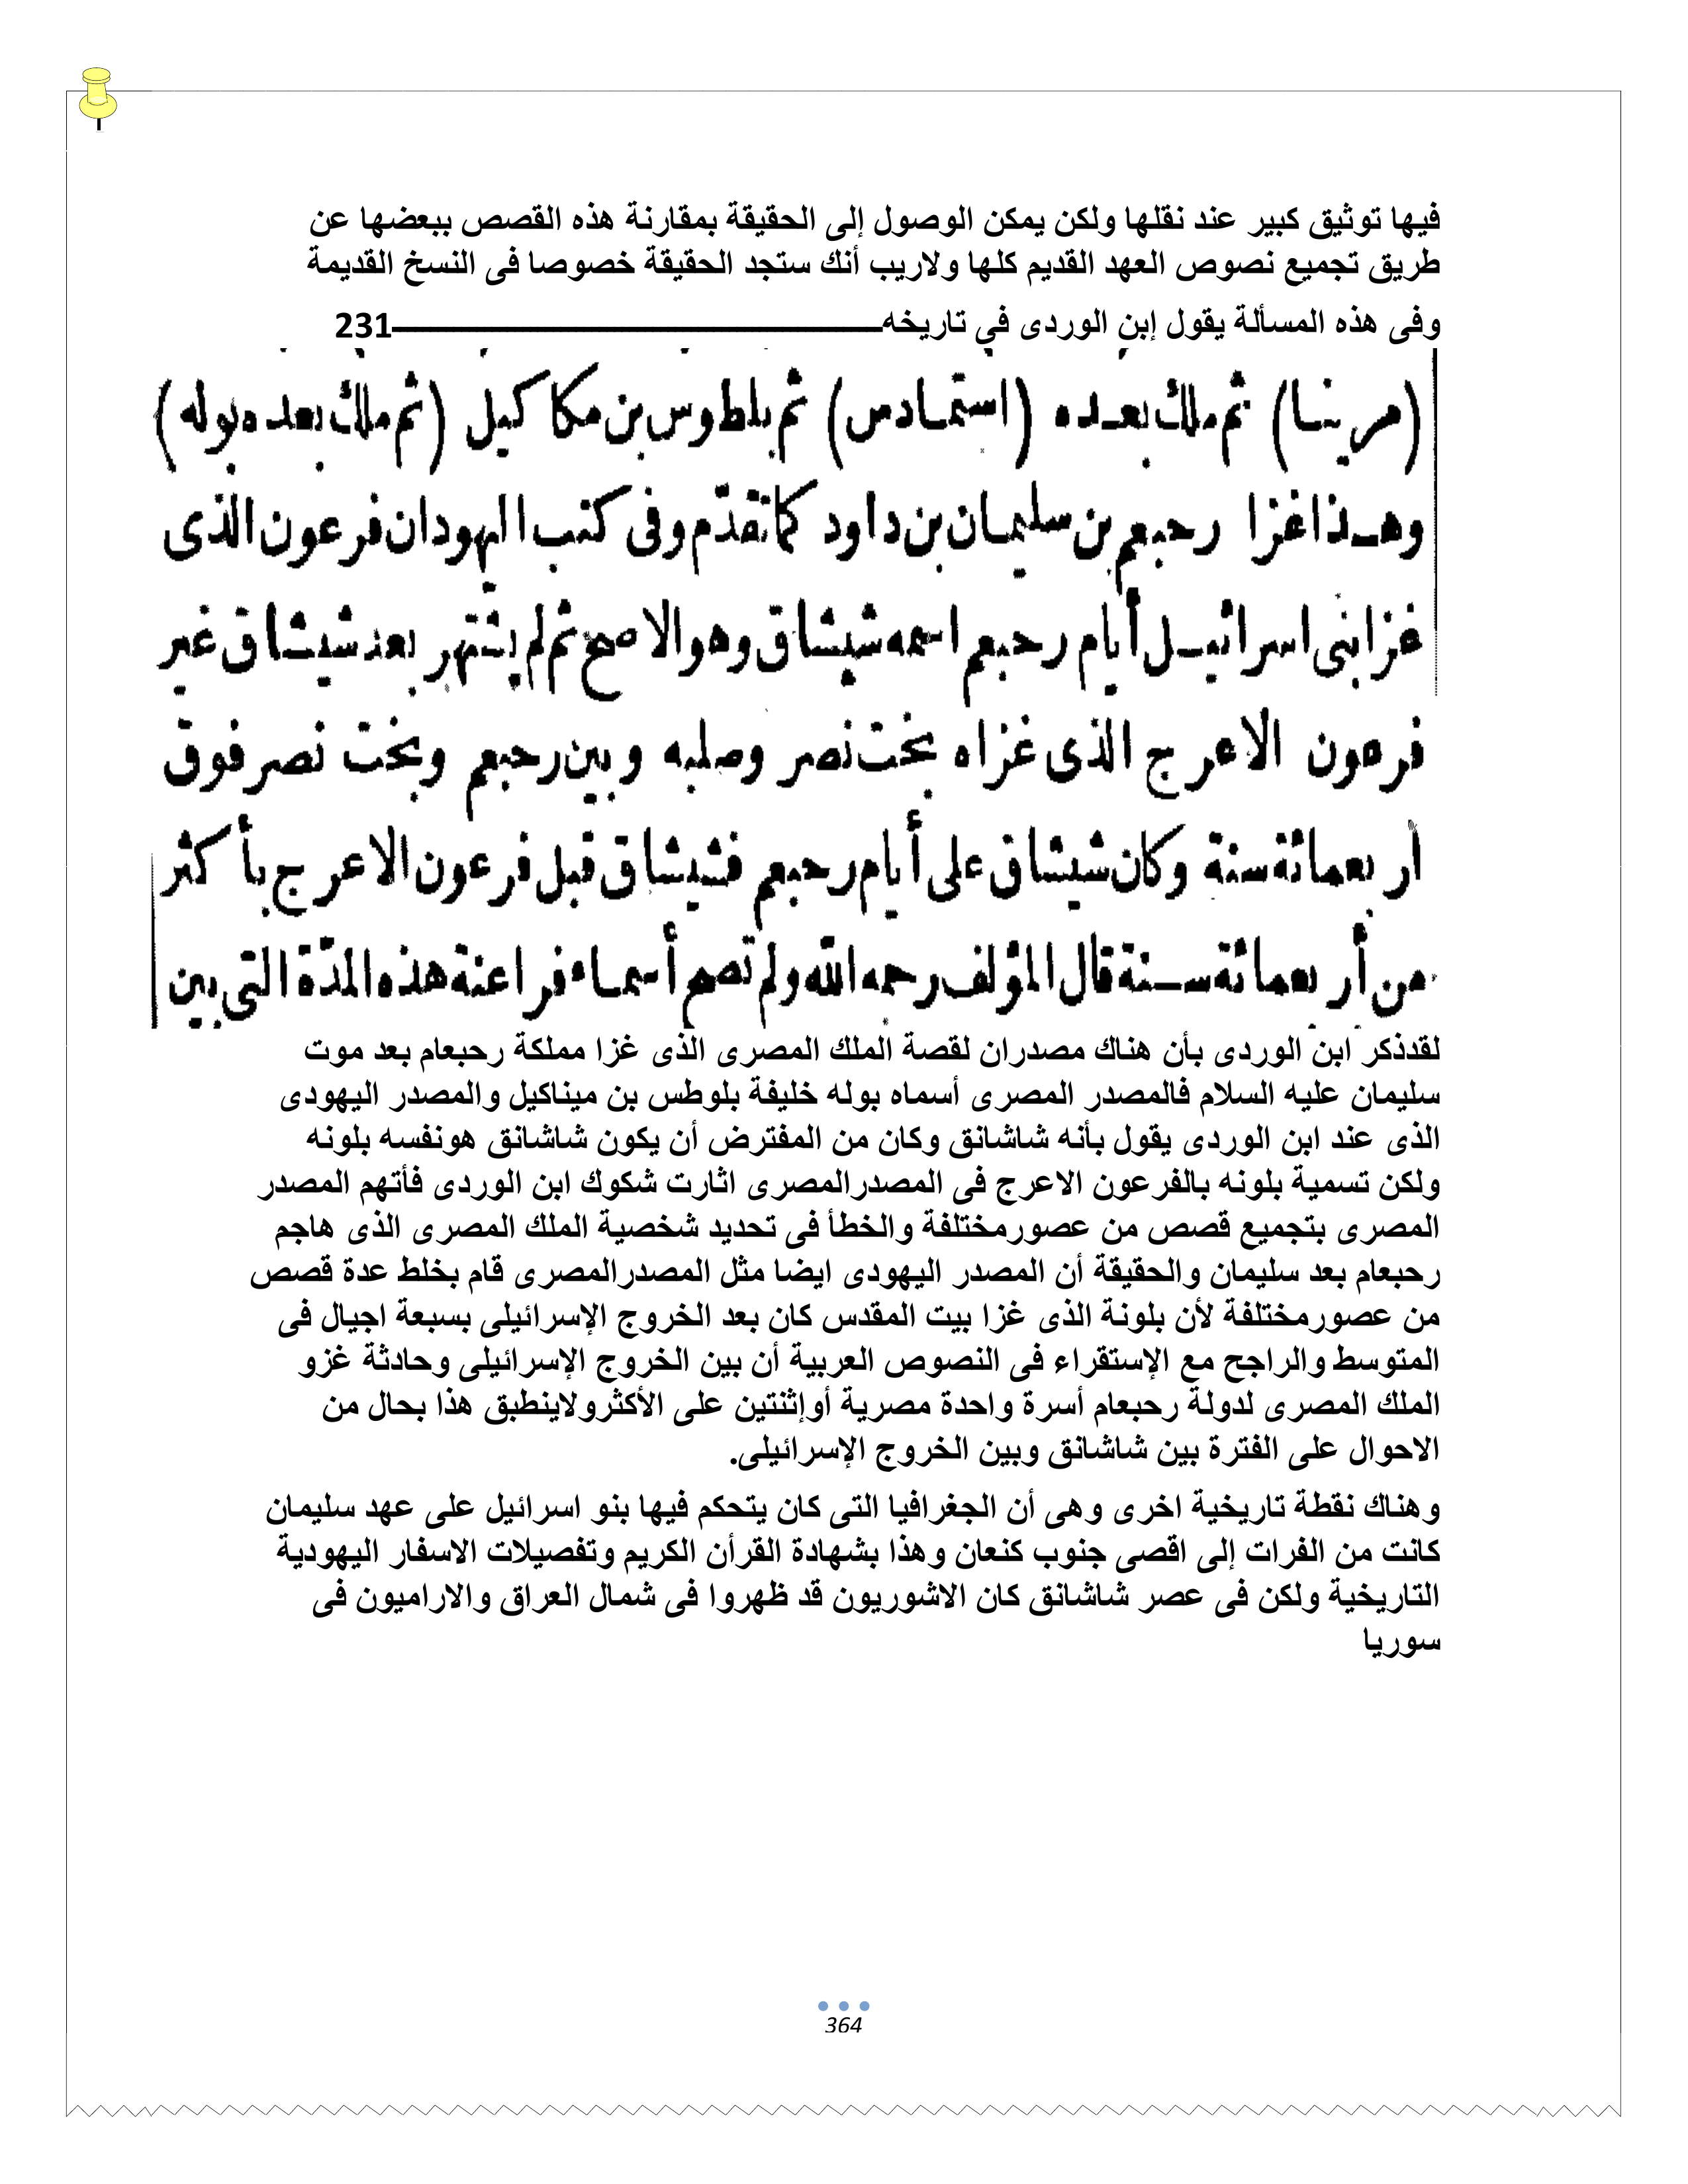 فيها توثيق كبير عند نقلها ولكن يمكن الوصول إلى الحقيقة بمقارنة هذه القصص ببعضها عن
طريق تجميع نصوص العهد القديم كلها ولاريب أنك ستجد الحقيقة خصوصا فى النسخ القديمة
وفى هذه المسألة يقول إبن الوردى في تاريخه ـــــــــــــــــــــــــــــــ231
(مرينا) ثم ملك بعده (استمادس) ثم بلطوس بن مكاكيل (ثم ملك بعده بوله)
وهذا غزا رحبعم بن سليمان بن داود كما تقدّم وفى كتب اليهود ان فرعون الذى
غزا بنى اسرائيل أيام رحبعم اسمه شيشاق وهو الاصح ثم لم يشتهر بعد شيشاق غير
فرعون الاعرج الذى غزاه بخت نصر وصلبه وبين رحبعم وبخت نصر فوق
أربعمائة سنة وكان شيشاق على أيام رحبعم فشيشاق قبل فرعون الاعرج بأكثر
من أربعمائة سنة قال المؤلف رحمه الله ولم تصح أسماء فراعنة هذه المدّة التى بين
لقدذكر ابن الوردى بأن هناك مصدران لقصة الملك المصرى الذى غزا مملكة رحبعام بعد موت
سليمان عليه السلام فالمصدر المصرى أسماه بوله خليفة بلوطس بن ميناكيل والمصدر اليهودى
الذى عند ابن الوردى يقول بأنه شاشانق وكان من المفترض أن يكون شاشانق هونفسه بلونه
ولكن تسمية بلونه بالفرعون الاعرج فى المصدرالمصرى اثارت شكوك ابن الوردى فأتهم المصدر
المصرى بتجميع قصص من عصورمختلفة والخطأ فى تحديد شخصية الملك المصرى الذى هاجم
رحبعام بعد سليمان والحقيقة أن المصدر اليهودى ايضا مثل المصدرالمصرى قام بخلط عدة قصص
من عصورمختلفة لأن بلونة الذى غزا بيت المقدس كان بعد الخروج الإسرائيلى بسبعة اجيال فى
المتوسط والراجح مع الإستقراء فى النصوص العربية أن بين الخروج الإسرائيلى وحادثة غزو
الملك المصرى لدولة رحبعام أسرة واحدة مصرية أوإثنتين على الأكثرولاينطبق هذا بحال من
الاحوال على الفترة بين شاشانق وبين الخروج الإسرائيلى.
وهناك نقطة تاريخية اخرى وهى أن الجغرافيا التى كان يتحكم فيها بنو اسرائيل على عهد سليمان
كانت من الفرات إلى اقصى جنوب كنعان وهذا بشهادة القرأن الكريم وتفصيلات الاسفار اليهودية
التاريخية ولكن فى عصر شاشانق كان الاشوريون قد ظهروا فى شمال العراق والاراميون فى
سوريا
364